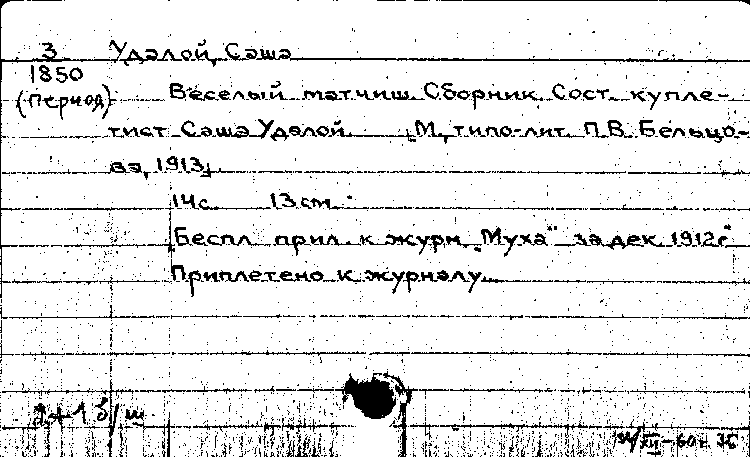 З
1850
(Период)
Удалой, Саша
Веселый матчиш. Сборник. Сост. купле-
тист Саша Удалой. [М., типо-лит. П.В. Бельцо-
ва, 1913].
14с. 13см.
"Беспл. прил. к журн. "Муха" за дек. 1912г."
Приплетено к журналу.
2+1 б/ш